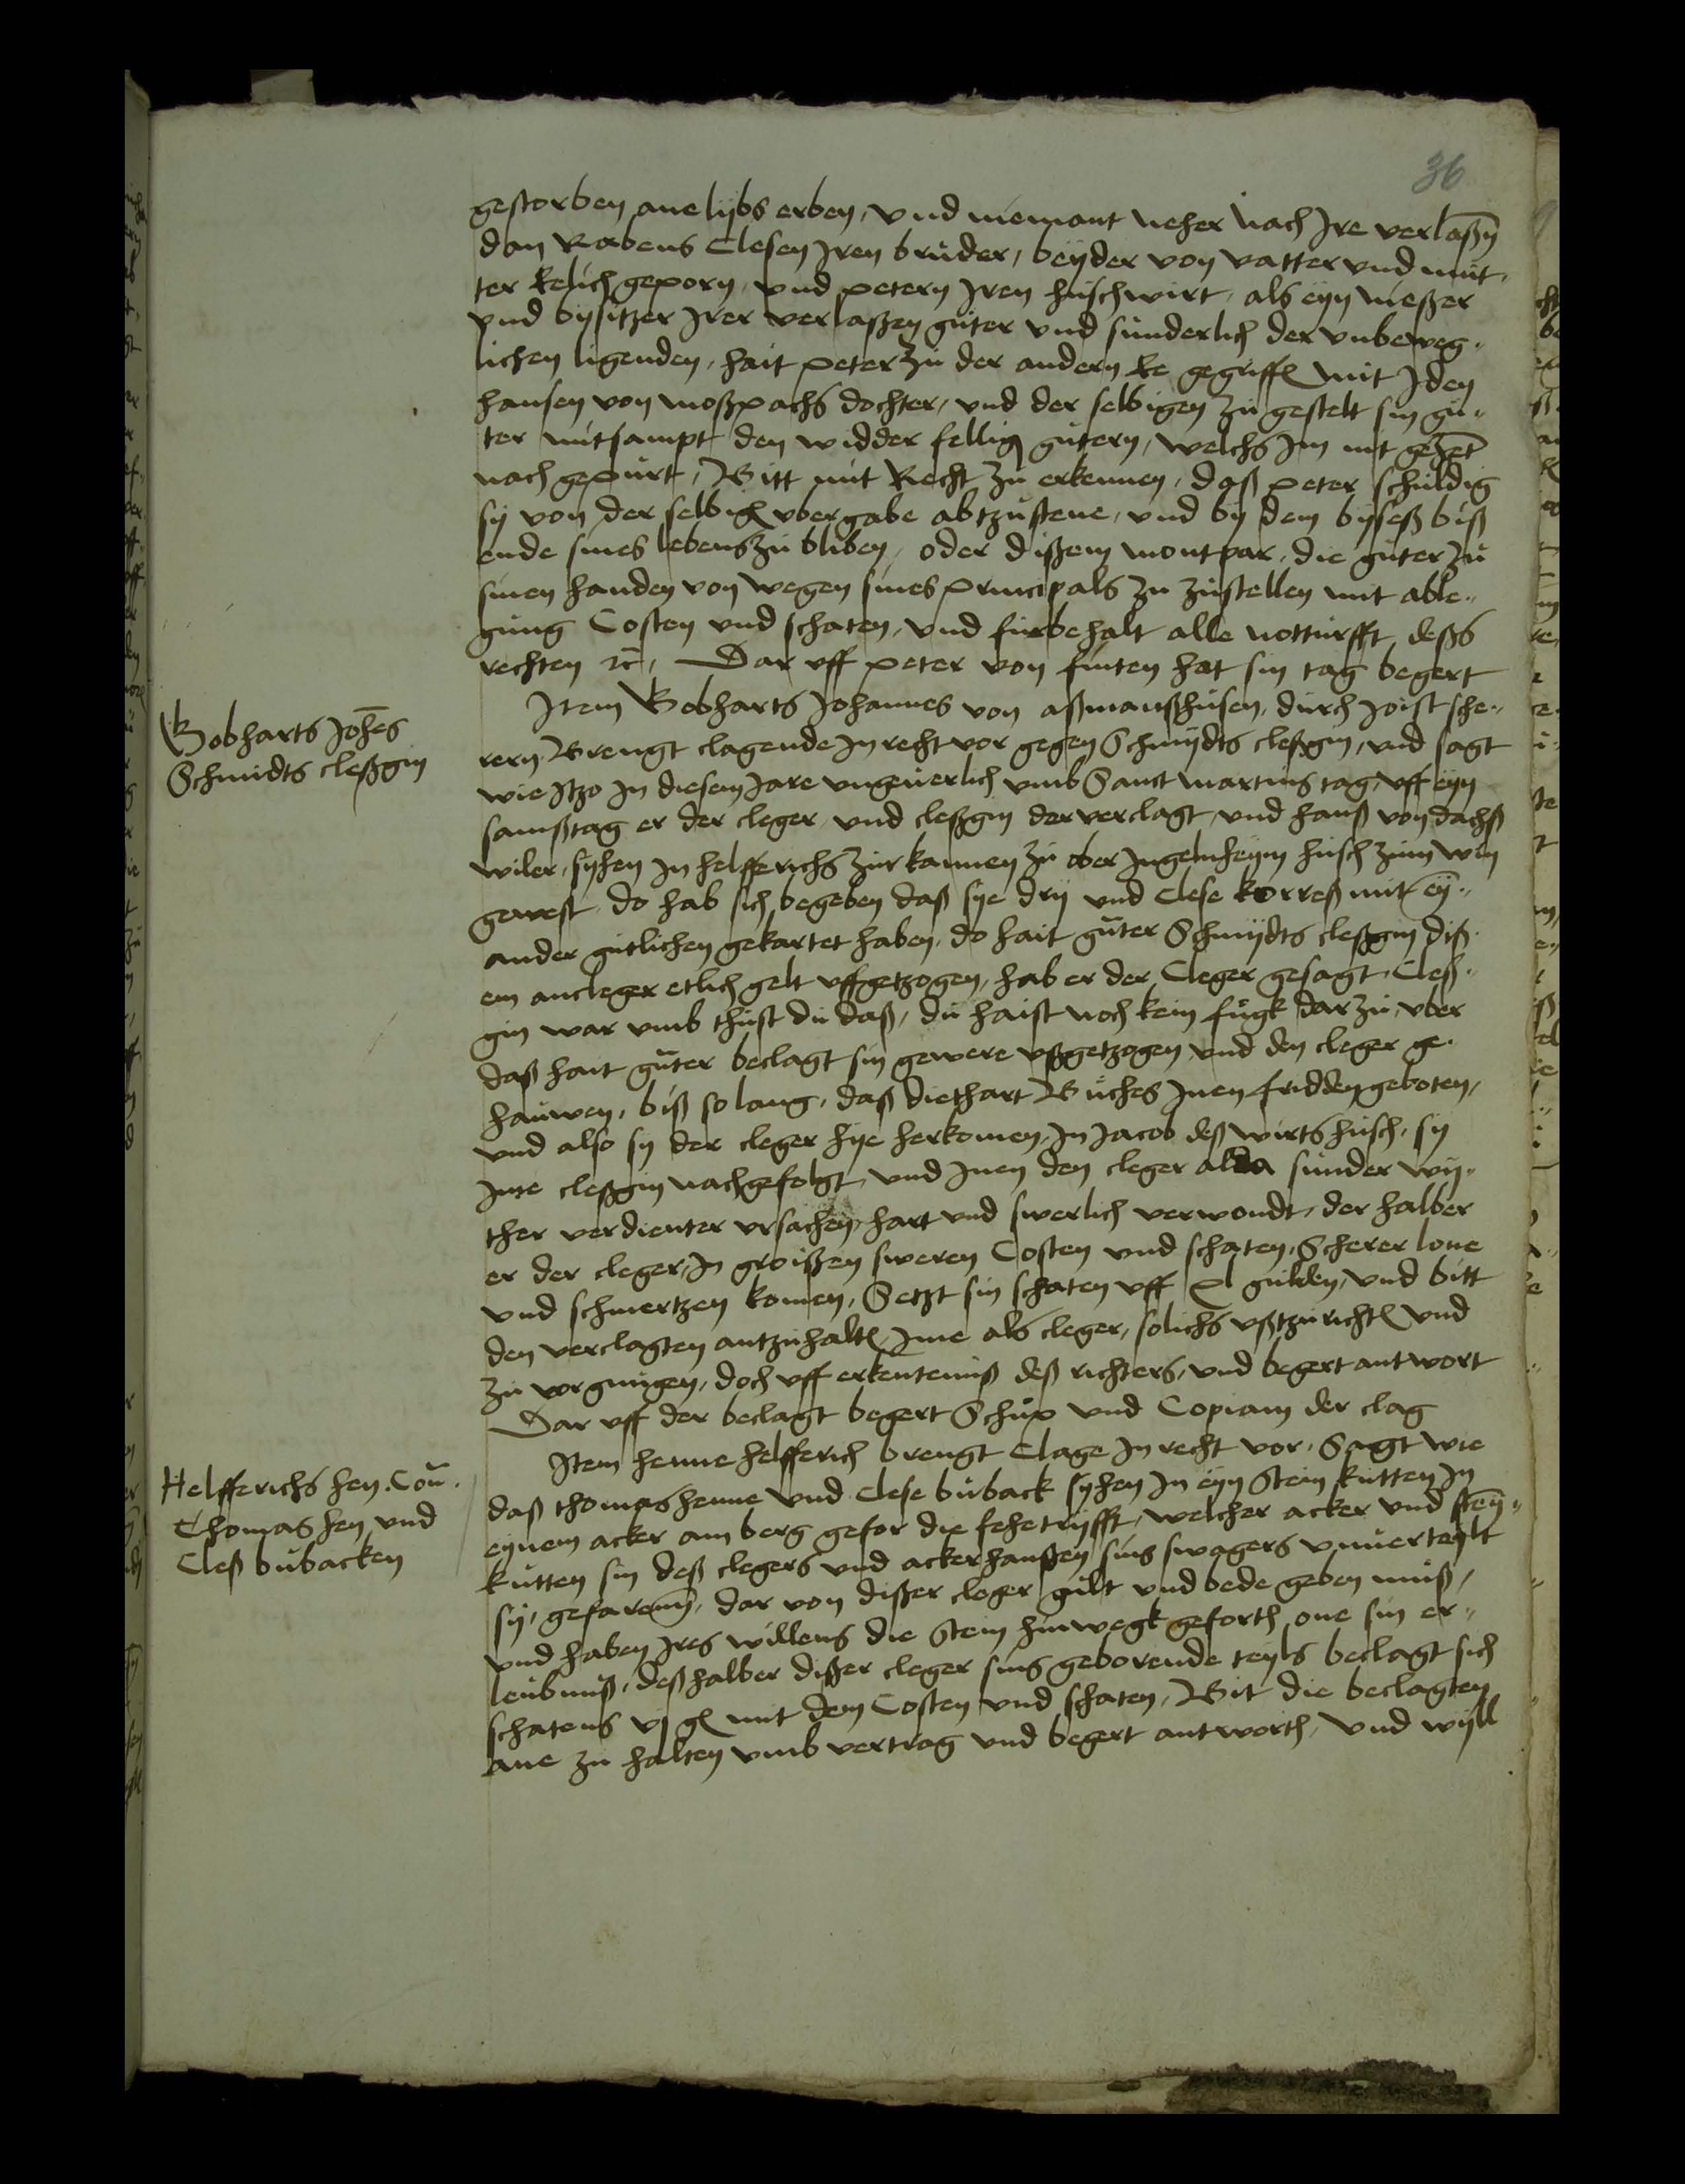 36
gestorben ane lybs erben, vnd niemant neher nach Jre verlaßen
dan Rabens Clesen Jren bruder, beyder von vatter vnd mut,
ter Eelich geporn, vnd petern Jren huschwirt, als eyn nießer
vnd bysitzer Jrer verlaßen guter vnd sunderlich der vnbeweg,
lichen ligenden, hait peter zu der andern Ee gegriffen mit Jden
hansen von moßpachs dochter, vnd der selbigen zu gestelt sin gu,,
ter mitsampt den widder fellig gutern, welchs Jm nit gezet
nach gepurt, Bitt mit Recht zu erkennen, daß peter schuldig
sy von der selbigen vbergabe abtzustene, vnd by dem byseß biß
ende sines lebens zu bliben, oder dißem montpar, die guter zu
sinen handen von wegen sines principals zu zustellen mit able,,
gung Costen vnd schaten, vnd furbehalt alle notturfft, deßs
rechten ꝛc, Dar vff peter von finten hat sin tag begert
Bobharts Johes
Schmidts cleßgin
Item Bobharts Johannes von aßmanßhusen, durch Joist sche,,
rern, Brengt clagende Jn recht vor gegen Schmydts cleßgin, vnd sagt
wie Jtzo Jn diesem Jare vngeuerlich vmb Sanct martins tag, vff eyn
samßtag er der cleger, vnd cleßgin der verclagt, vnd hanß von dachß
wiler, syhen Jn helfferichs zur kannen zu ober Jngelnheym husch zum win
gewest, do hab sich begeben daß sye dry vnd Clese korreß mit ey,,
ander gutlichen gekartet haben, do hait guter Schmydts cleßgin diß,
em ancleger etlich gelt vffgetzogen, hab er der Cleger gesagt, Cleß,,
gin war vmb thust du daß, du haist noch kein fugk dar zu, vber
daß hait guter beclagt sin gewere vßgetzogen vnd den cleger ge,
hauwen, biß so lang, daß diethart Buches Jnen fridden geboten,
vnd also sy der cleger hye herkomen, Jn Jacob deß wirts husch, sy
Jme cleßgin nachgefolgt, vnd Jnen den cleger alda sunder wy,
ther verdienter vrsachen, hart vnd swerlich verwondt, der halber
er der cleger, Jn groißen sweren Costen vnd schaten, Scherer lone
vnd schmertzen komen, Setzt sin schaten vff xl gulden, vnd bitt
den verclagten antzuhalten Jme als cleger, solichs vßtzurichten vnd
zu vergnugen, doch vff erkenteniß deß richters, vnd begert antwort
Dar vff der beclagt begert Schup vnd Copiam der clag
Helfferichs hen. Con.
Thomas hen vnd
Cleß bubacken
Item henne helfferich brengt Clage Jn recht vor, Sagt wie
daß thomas henne vnd Clese buback syhen Jn eyn stein kutten Jn
eynem acker am berg gefor die fehetryfft, welcher acker vnd stey,,
kutten sin deß clegers vnd ackerhanßen sins swagers vnuerteylt
sy, gefaren, dar von dißer cleger gult vnd bede geben muß,
vnd haben Jres willens die stein hinwegk geforth, one sin er,,
leubniß, deßhalber dißer cleger sins geborende teyls beclagt sich
schatens vj gl mit dem Costen vnd schaten, Bit die beclagten
ane zu halten vmb vertrag vnd begert antworth, vnd wyll